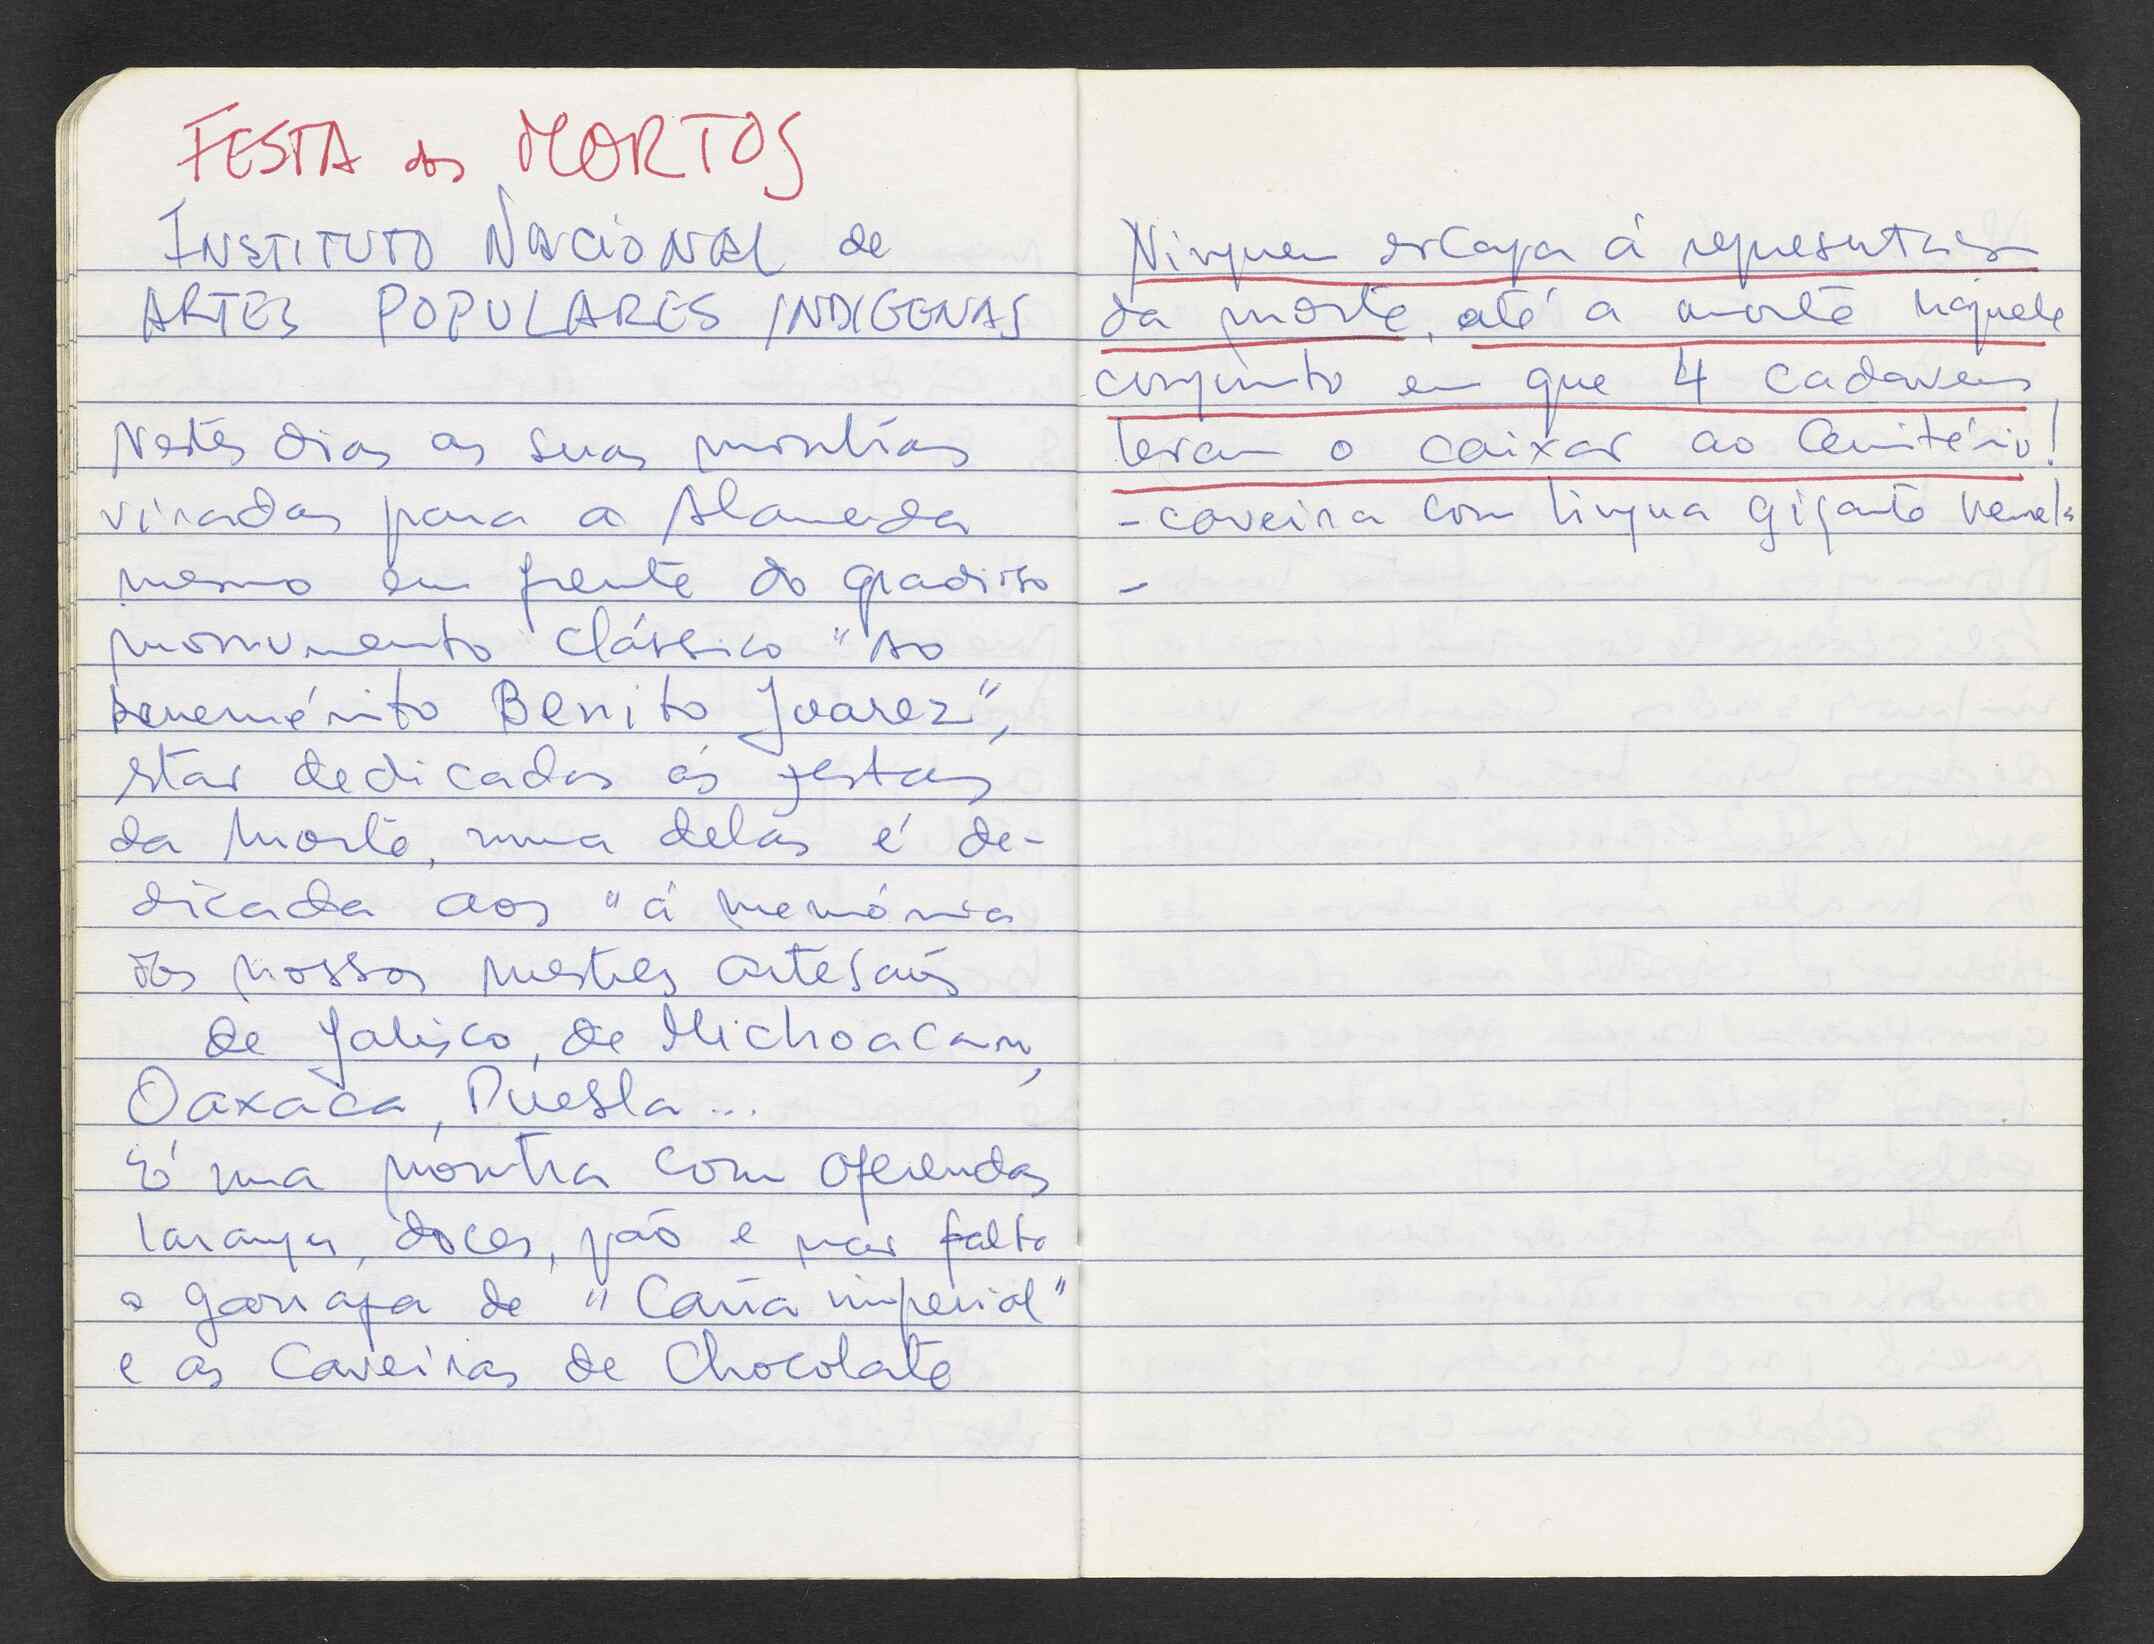 FESTA dos MORTOS
INSTITUTO NACIONAL de
ARTES POPULARES INDIGENAS
Nestes dias as suas montras
viradas para a Alameda
mesmo em frente do gradioso
monumento "clássico" "Ao
benemérito Benito Juarez",
star dedicadas ás festas
da morte, uma delas é de-
dicada aos "á memória
dos nossos mestres artesãos
de Jalisco, de Michoacan,
Oaxaca, Puebla...
É uma móntra com oferendas
laranjas, doces, pão e não falta
a garrafa de "Caña imperial"
e as Caveiras de Chocolate
Ninguem escapa á representação
da morte, até a morte naquele
conjunto em que 4 cadaveres
levam o caixão ao Cemitério!
- caveira com lingua gigante
-